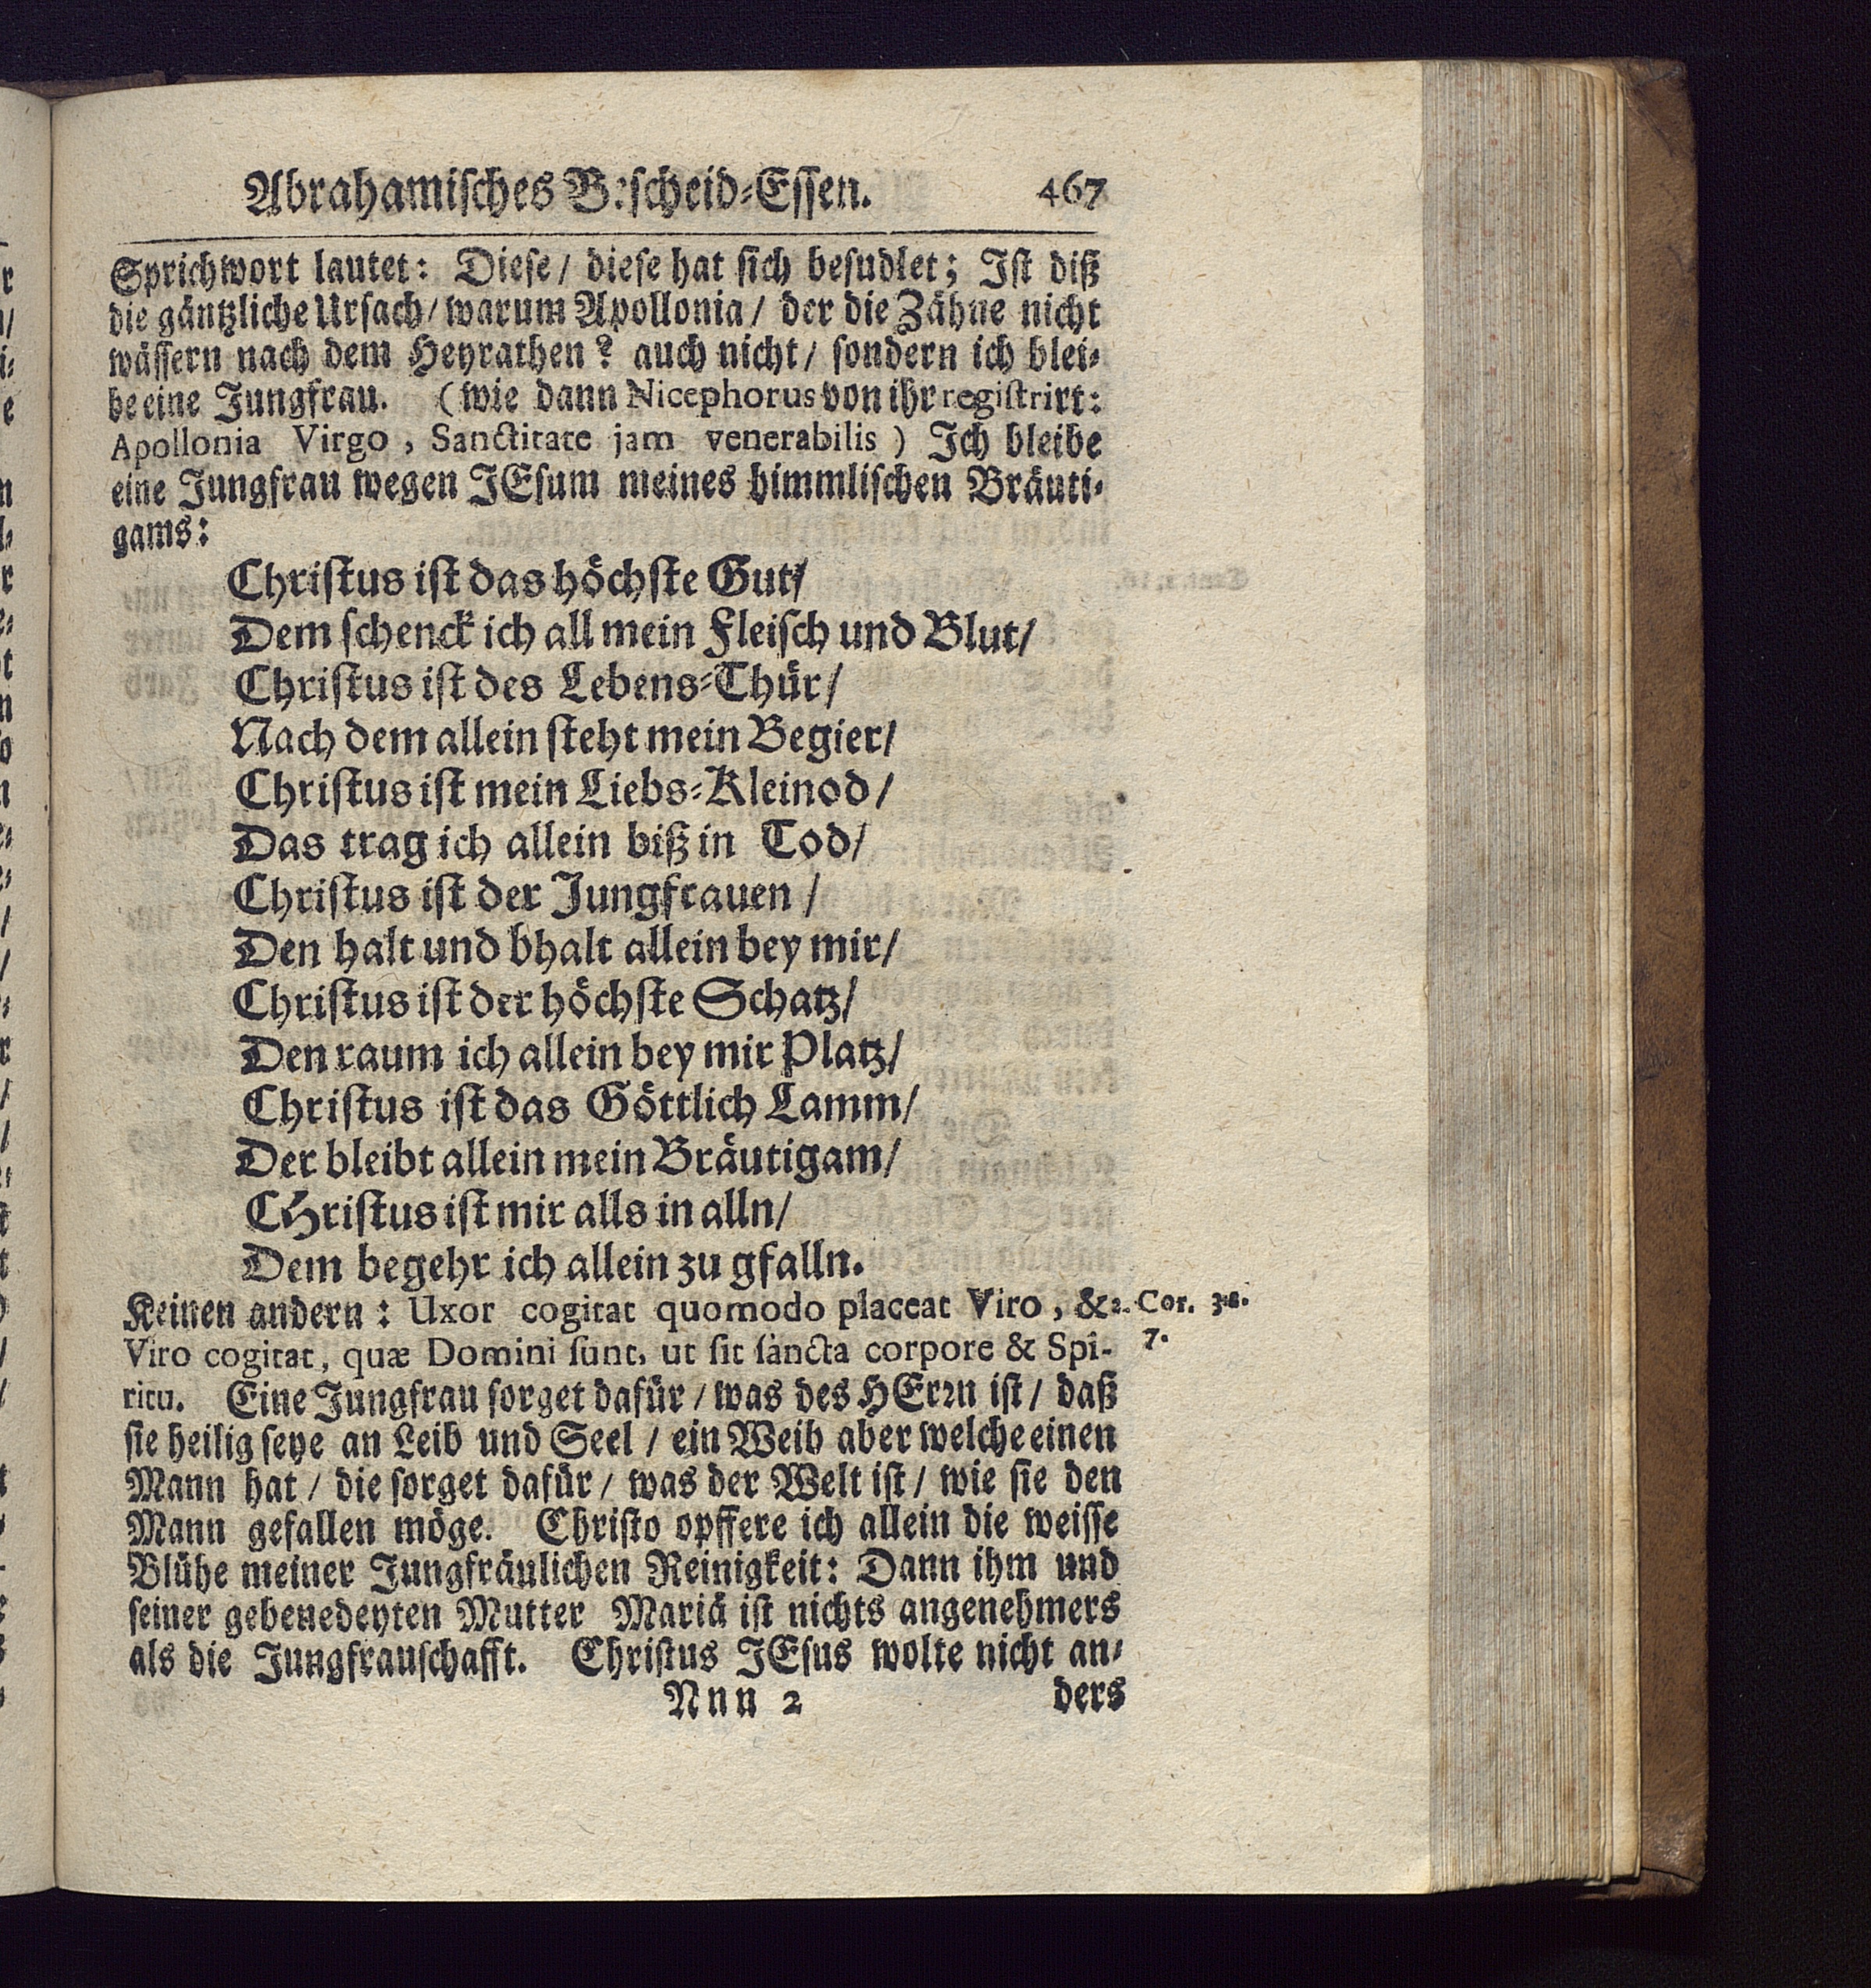 Abrahamisches B:scheid-Essen. 467
Sprichwort lautet: Diese / diese hat sich besudlet; Ist diß
die gäntzliche Ursach / warum Apollonia / der die Zähne nicht
wässern nach dem Heyrathen? auch nicht / sondern ich blei-
be eine Jungfrau. (wie dann Nicephorus von ihr registrirt:
Apollonia Virgo, Sanctitate jam venerabilis) Ich bleibe
eine Jungfrau wegen JEsum meines himmlischen Bräuti-
gams:
Christus ist das höchste Gut/
Dem schenck ich all mein Fleisch und Blut/
Christus ist des Lebens-Thür/
Nach dem allein steht mein Begier/
Christus ist mein Liebs-Kleinod/
Das trag ich allein biß in Tod/
Christus ist der Jungfrauen /
Den halt und bhalt allein bey mir/
Christus ist der höchste Schatz/
Den raum ich allein bey mir Platz/
Christus ist das Göttlich Lamm/
Der bleibt allein mein Bräutigam/
CHristus ist mir alls in alln/
Dem begehr ich allein zu gfalln.
Keinen andern: Uxor cogitat quomodo placeat Viro, & 2. Cor.
Viro cogitat, quæ Domini sunt, ut sit sancta corpore & Spi- 7.
ritu. Eine Jungfrau sorget dafür / was des HErrn ist / daß
sie heilig seye an Leib und Seel / ein Weib aber welche einen
Mann hat / die sorget dafür / was der Welt ist / wie sie den
Mann gefallen möge. Christo opffere ich allein die weisse
Blühe meiner Jungfräulichen Reinigkeit: Dann ihm und
seiner gebenedeyten Mutter Mariä ist nichts angenehmers
als die Jungfrauschafft. Christus JEsus wolte nicht an-
Nnn 2 ders